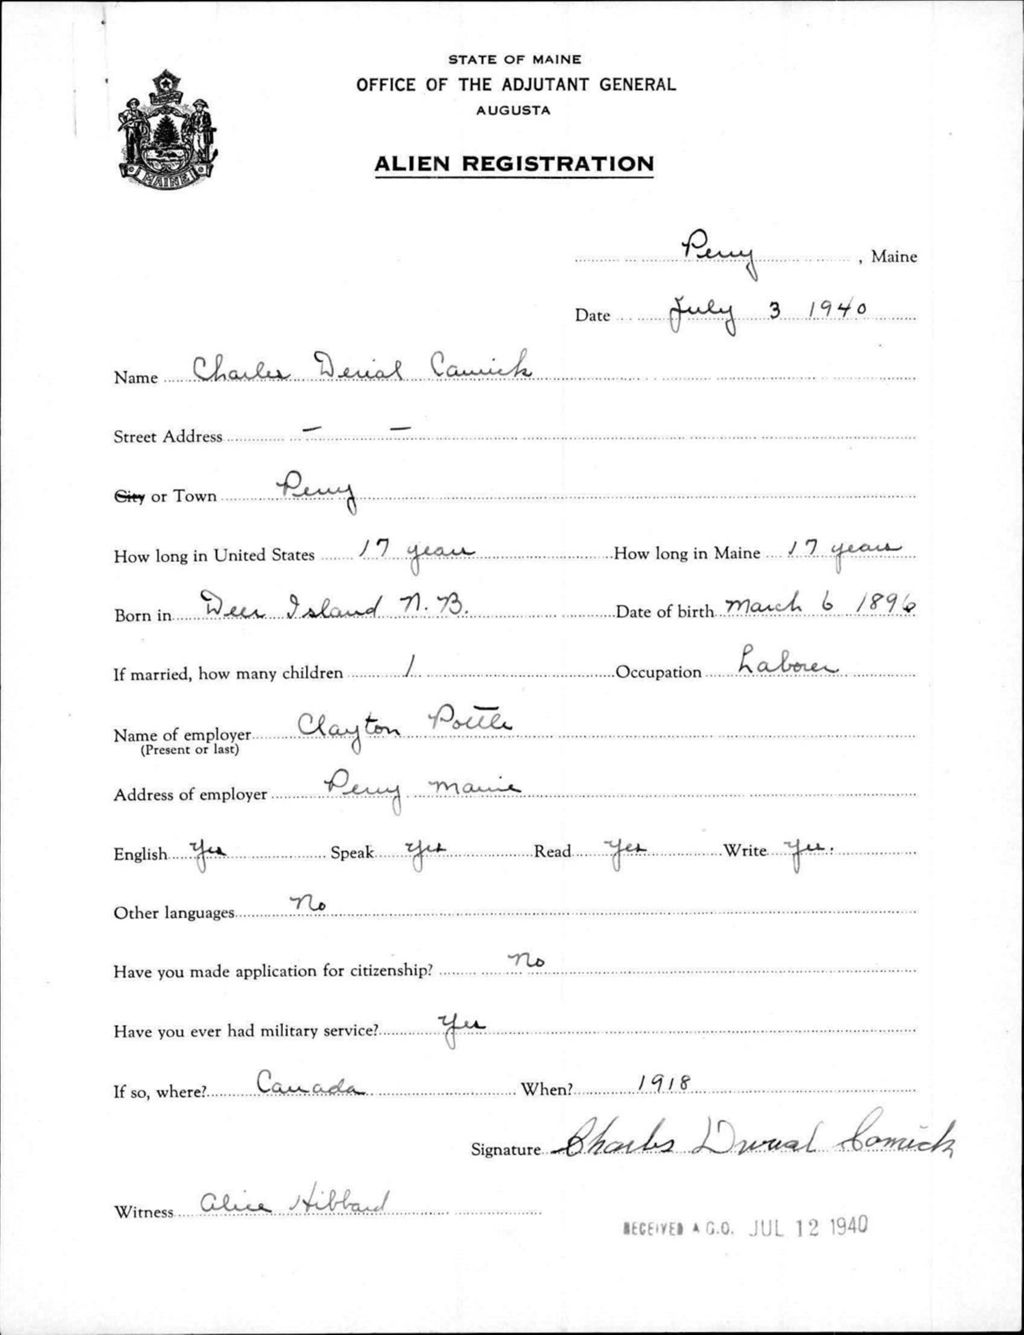 STATE OF MAINE
OFFICE OF THE ADJUTANT GENERAL
AUGUSTA
MAINE
ALIEN REGISTRATION
Perry, Maine
Date July 3 1940
Name Charles
Street Address — —
City or Town Perry
How long in United States 17 years How long in Maine 17 years
Born in Deer Island N.B. Date of birth March 6 1896
If married, how many children 1 Occupation Laborer
Name of employer Clayton Pottle
(Present or last)
Address of employer Perry Maine
English Yes Speak Yes Read Yes Write Yes.
Other languages No
Have you made application for citizenship? No
Have you ever had military service? Yes
If so, where? Canada When? 1918
Signature Charles
Witness Alice Hibbard
RECEIVED A.G.O. JUL 12 1940